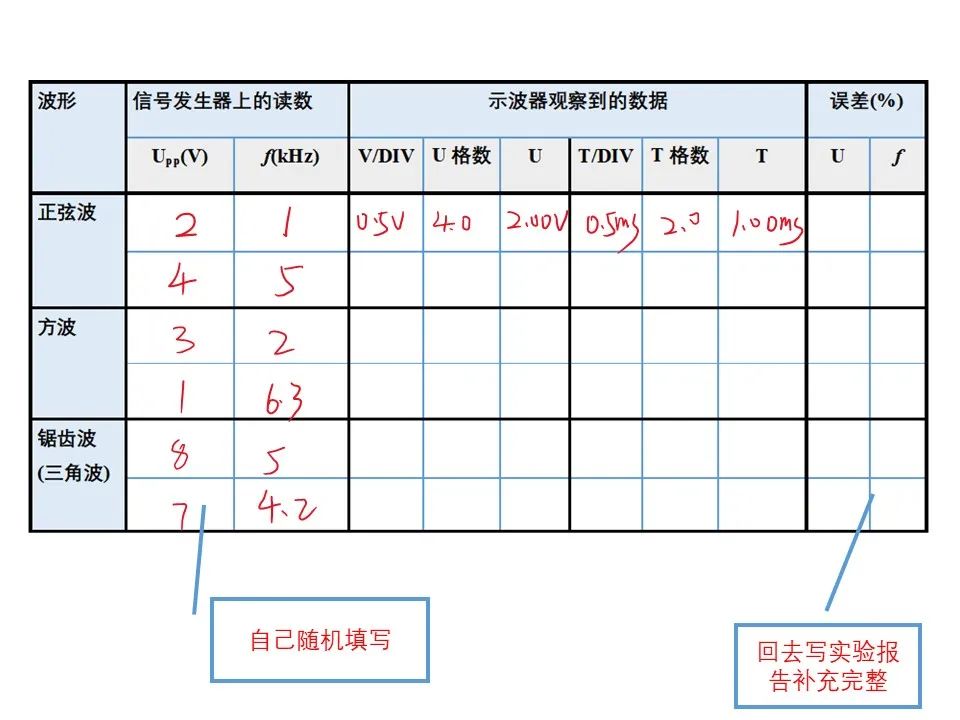 波形 信号发生器上的读数 示波器观察到的数据 误差(%)
Upp(V) f(kHz) V/DIV U 格数 U T/DIV T 格数 T U f
正弦波 2 1 0.5V 4.0 2.00V 0.5ms 2.0 1.00ms
4 5
方波 3 2
1 6.3
锯齿波 8 5
(三角波)
7 4.2
自己随机填写
回去写实验报
告补充完整